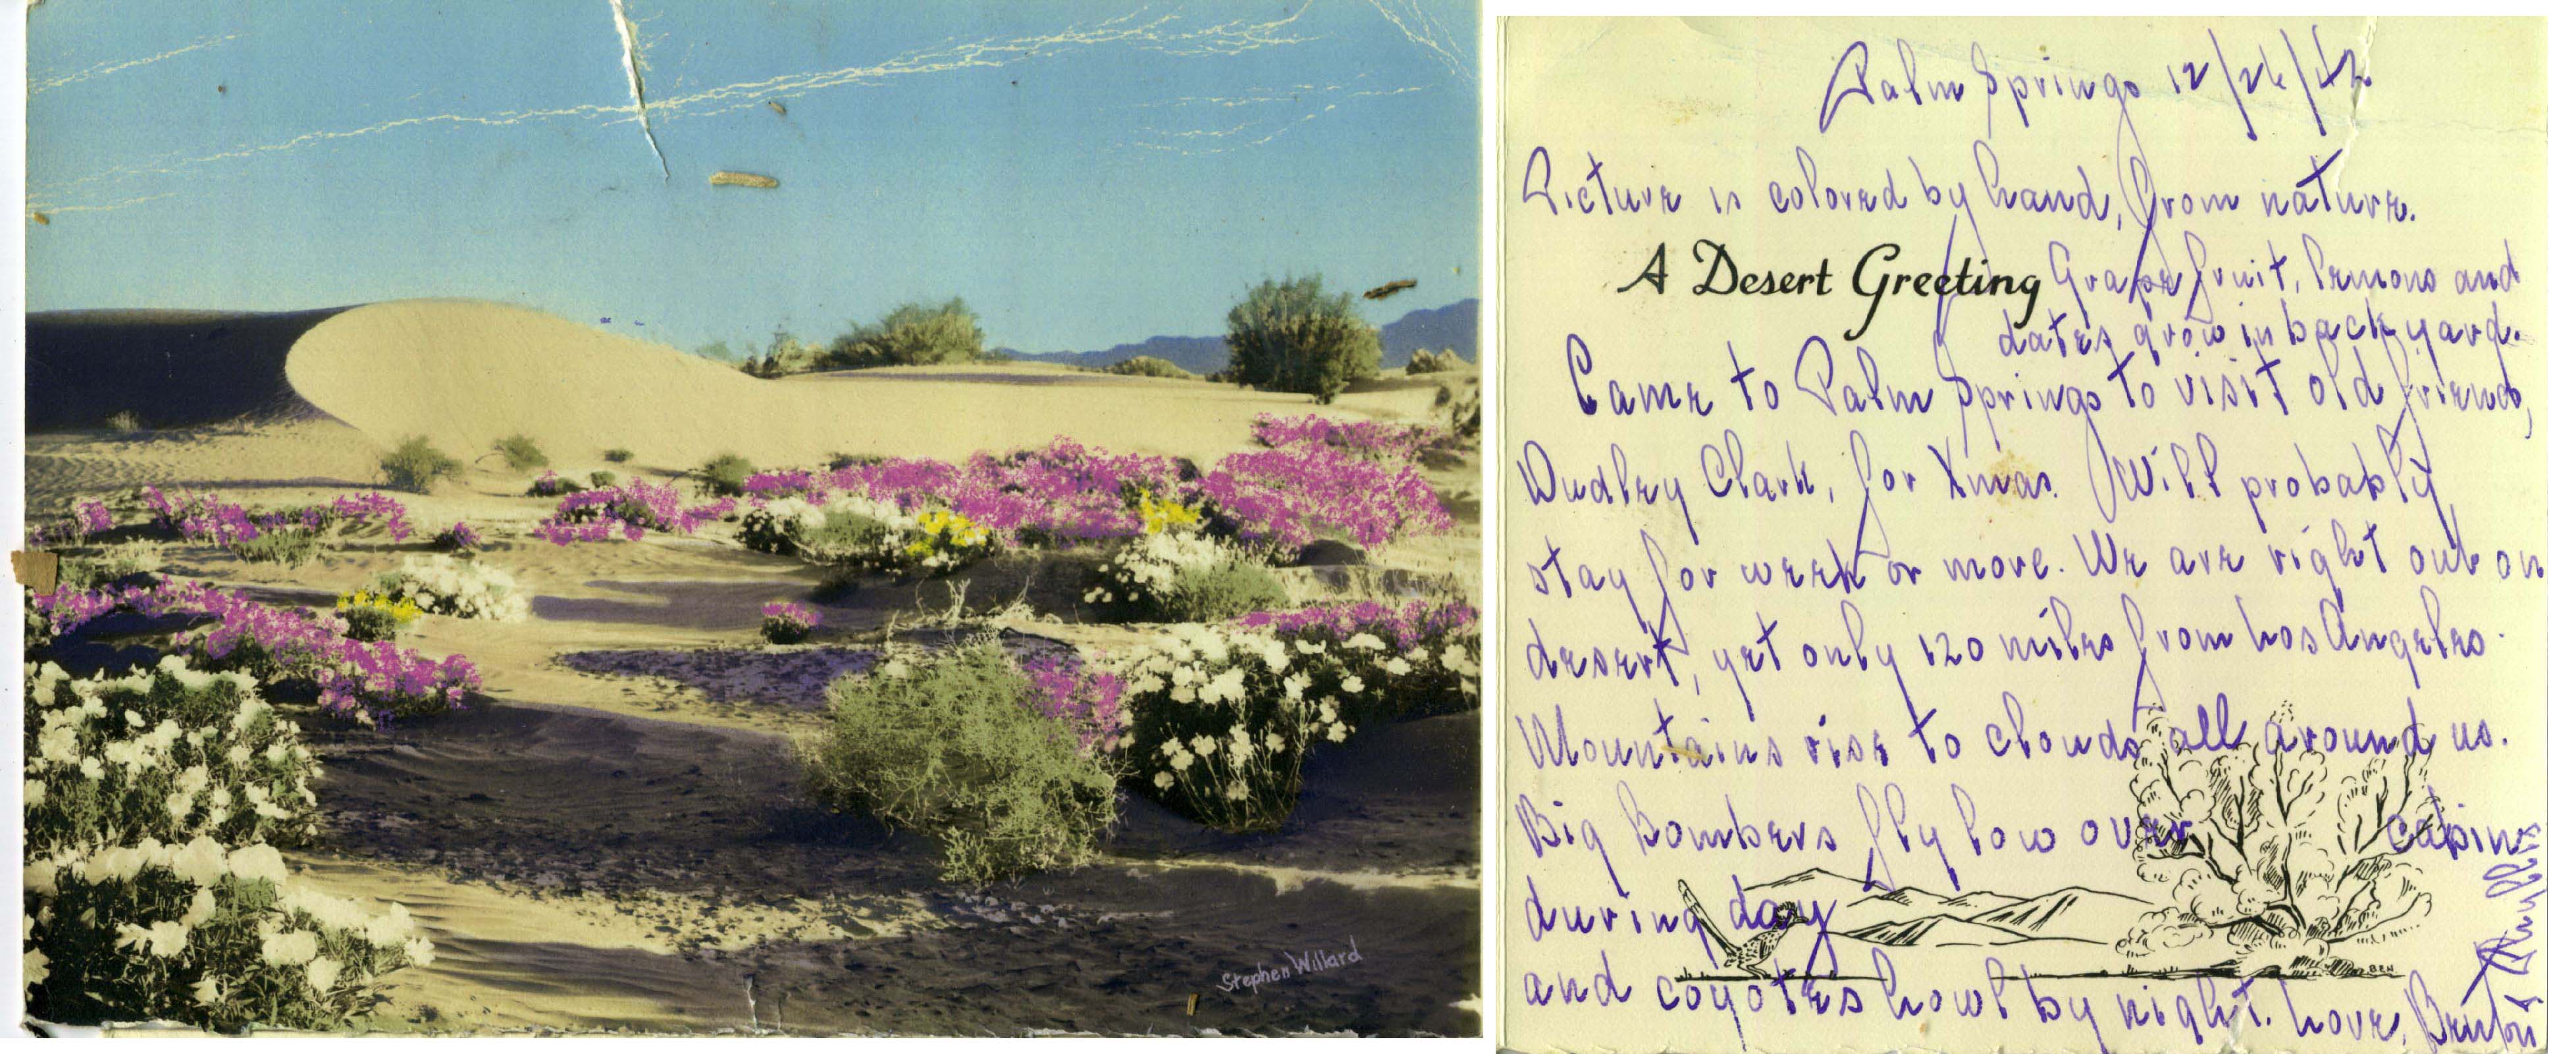 Stephen Willard
Palm Springs 12/26/42
Picture is colored by hand, from nature.
A Desert Greeting
Grapefruit, lemons and
dates grow in back yard.
Came to Palm Springs to visit old friends,
Dudley Clark, for Xmas. Will probably
stay for week or more. We are right out on
desert, yet only 120 miles from Los Angeles.
Mountains rise to clouds all around us.
Big Bombers fly low over cabin
during day
and coyotes howl by night. Love,
BEN